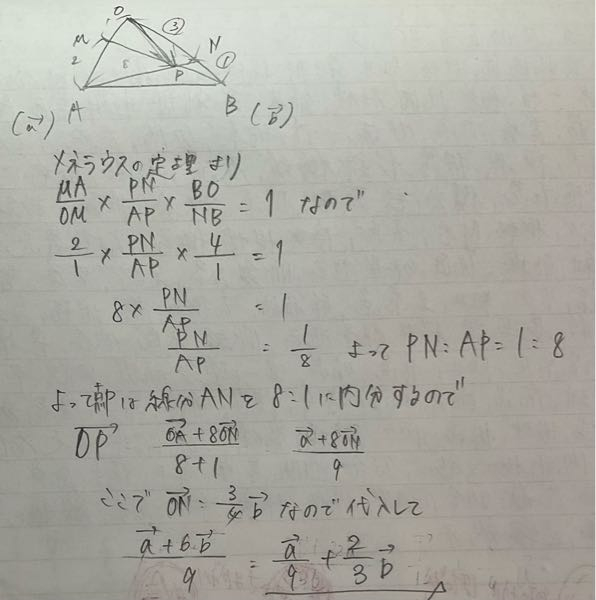 O
M ③ N
2 8 P ①
A B
(a→) (b→)
メネラウスの定理より
MA/OM × PN/AP × BO/NB = 1 なので
2/1 × PN/AP × 4/1 = 1
8 × PN/AP = 1
PN/AP = 1/8 よって PN:AP=1:8
よって は線分ANを8:1に内分するので
OP→ (OA→+8ON→)/(8+1) (a→+8ON→)/9
ここで ON→=3/4 b→ なので代入して
(a→+6b→)/9 = a→/9 + 2/3 b→